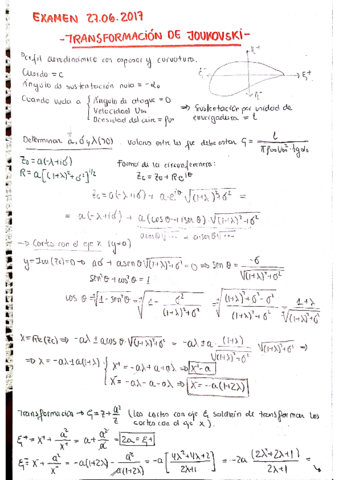 EXAMEN 27.06.2017
- TRANSFORMACIÓN DE JOUKOVSKI -
Perfil aerodinámico con espesor y curvatura.
Cuerda = c
Ángulo de sustentación nula = -α₀
Cuando vuela a { Ángulo de ataque = 0
Velocidad U∞
Densidad del aire = ρ∞
⇒ Sustentación por unidad de envergadura = l
Determinar a, σ y λ (>0). Valores entre los que debe estar G = l / (π ρ∞ U∞² c tg α₀)
Z₀ = a(-λ+iσ)
R = a[(1+λ)²+σ²]^1/2
Forma de la circunferencia:
Zc = Z₀ + R e^iθ
Zc = a(-λ+iσ) + a·e^iθ √((1+λ)²+σ²) =
= a(-λ+iσ) + a(cosθ+i senθ) √((1+λ)²+σ²)
→ Cortes con el eje x (y=0)
y = Im(Zc) = 0 → aσ + a senθ √((1+λ)²+σ²) = 0 ⇒ senθ = -σ / √((1+λ)²+σ²)
sen²θ + cos²θ = 1
cosθ = ±√(1-sen²θ) = ±√(1 - σ²/((1+λ)²+σ²)) = ±√(((1+λ)²+σ²-σ²)/((1+λ)²+σ²)) = ± (1+λ)/√((1+λ)²+σ²)
x = Re(Zc) ⇒ -aλ ± a cosθ √((1+λ)²+σ²) = -aλ ± a · (1+λ)/√((1+λ)²+σ²) √((1+λ)²+σ²) ⇒
⇒ x = -aλ ± a(1+λ) { x⁺ = -aλ + a + aλ ⇒ x⁺ = a
x⁻ = -aλ - a - aλ ⇒ x⁻ = -a(1+2λ)
Transformación → ζ = z + a²/z (los cortes con eje ξ saldrán de transformar los cortes con el eje x).
ξ⁺ = x⁺ + a²/x⁺ = a + a²/a = 2a = ξ⁺
ξ⁻ = x⁻ + a²/x⁻ = -a(1+2λ) - a²/(a(1+2λ)) = -a[(4λ²+4λ+2)/(2λ+1)] = -2a (2λ²+2λ+1)/(2λ+1) =